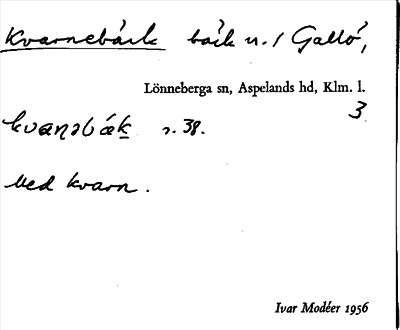 Kvarnebäck bäck n. / Gallö,
Lönneberga sn, Aspelands hd, Klm. l.
3
kvaṇəbæk s. 38.
Med kvarn.
Ivar Modéer 1956